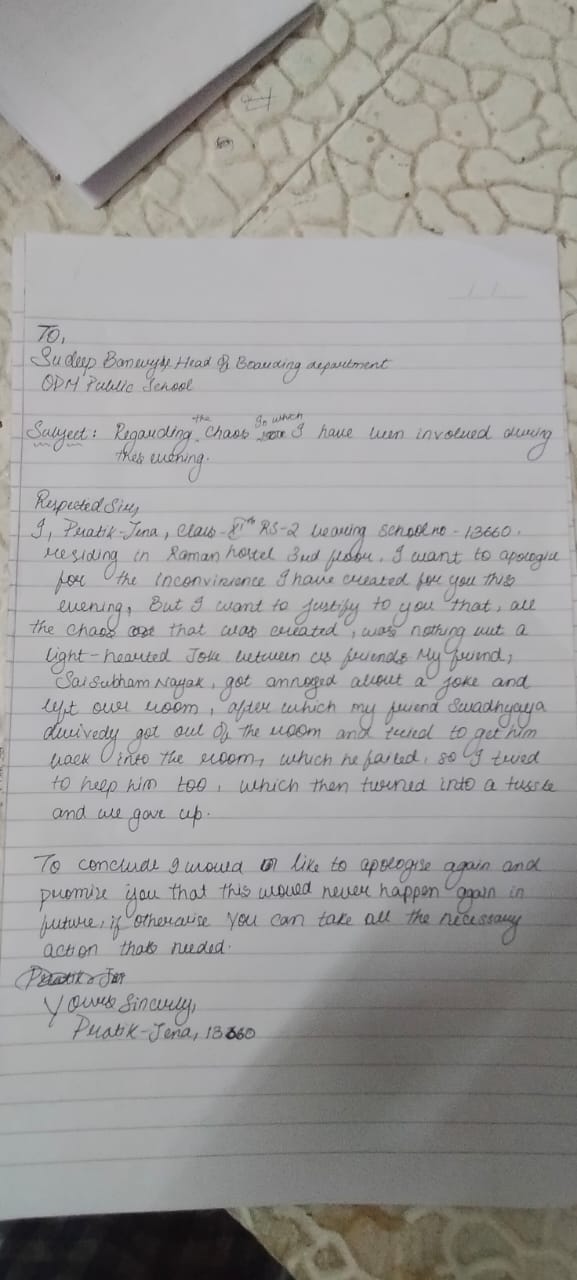 To,
Sudeep Banerjee Head of Boarding department
ODM Public School
Subject: Regarding the chaos in which I have been involved during
this evening.
Respected Sir,
I, Pratik-Jena, class-XIth RS-2 bearing school no - 13660.
residing in Raman hostel 3rd floor. I want to apologize
for the inconvinience I have created for you this
evening, But I want to justify to you that, all
the chaos that was created, was nothing but a
light-hearted Joke between us friends My friend,
Sai Subham Nayak, got annoyed about a joke and
left our room, after which my friend Swadhyaya
dwivedy got out of the room and tried to get him
back into the room, which he failed, so I tried
to help him too, which then turned into a tussle
and we gave up.
To conclude I would like to apologise again and
promise you that this would never happen again in
future, if otherwise you can take all the necessary
action thats needed.
Yours Sincerly,
Pratik-Jena, 13660